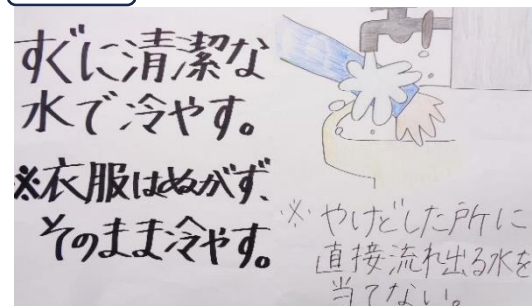 すぐに清潔な
水で冷やす。
※衣服はぬがず、
そのまま冷やす。
※やけどした所に
直接流れ出る水を
当てない。